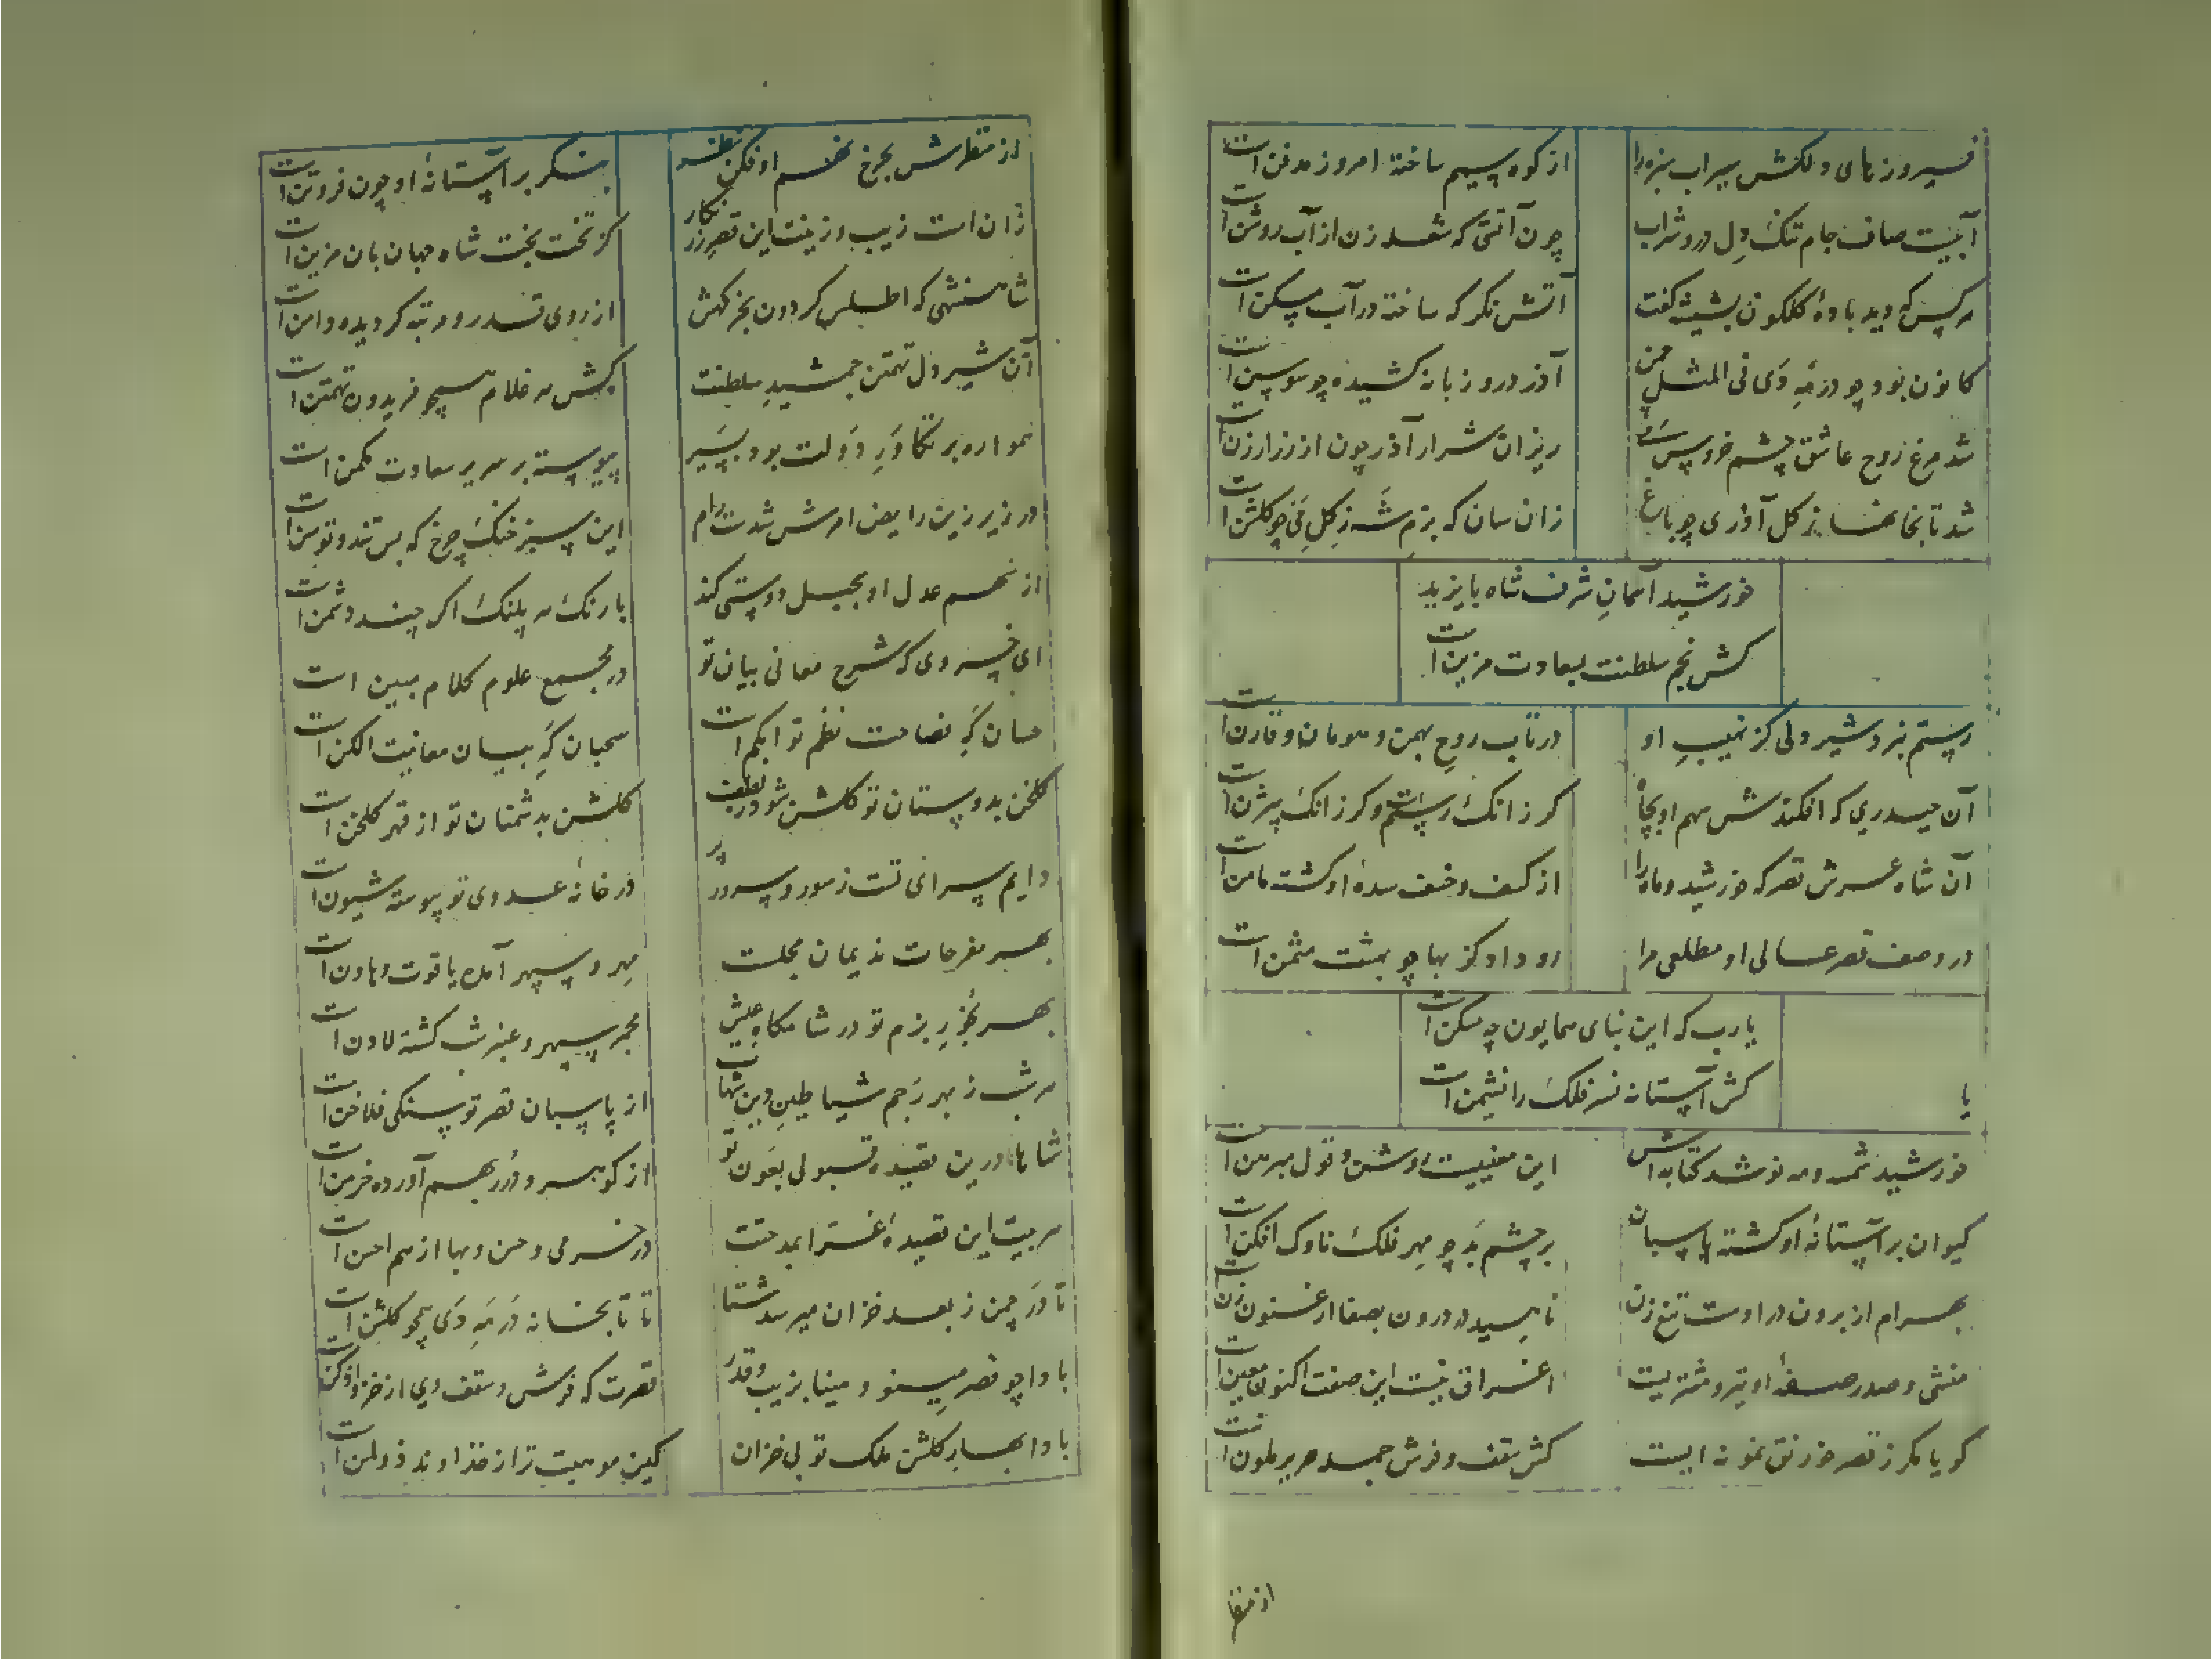 فیروزهای دلکش سیراب سبزه را
از کوه سیم ساخته امروز مدفن است
آبیست صاف جام تنک دل درو شراب
چون آتشی که شعله زن از آب روشن است
هر کس که دید باده گلگون بشیشه گفت
آتش نگر که ساخته در آب مسکن است
کانون بود چو در مه دی فی المثل چمن
آذر درو زبانه کشیده چو سوسن است
شد مرغ روح عاشق چشم خروس
ریزان شرار آذر چون ارزن است
شد تابخانها ز گل آذری چو باغ
زان سان که بزم شه ز گل می چو گلشن است
خورشید آسمان شرف شاه بایزید
کش نجم سلطنت بسعادت مزین است
رستم نبرد شیر دلی کز نهیب او
در تاب روح بهمن و هومان و قارن است
آن حیدری که افکندش سهم او بچاه
گر زانک رستم و گر زانک بیژن است
آن شاه عرش قصر که خورشید و ماه را
از کسف و خسف سدۀ او گشته مامن است
در وصف قصر عالی او مطلعی مرا
رو داد کز بها چو بهشت مثمن است
یارب که این بنای همایون چه مسکن است
کش آستانه نسر فلک را نشیمن است
یا
خورشید شمسه و مه نو شد کتابه اش
این معنییست روشن و قول مبرهن است
کیوان بر آستانۀ او گشته پاسبان
بر چشم بد چو مهر فلک ناوک افکن است
بهرام از برون در اوست تیغ زن
ناهید در درون بصفا ارغنون زن است
منشی و صدر صفۀ او تیر و مشتریست
اغراق نیست این صفت اکنون معین است
گویا مگر ز قصر خورنق نمونه ایست
کش سقف و فرش جمله حریر ملون است
از منظ
از منظرش بچرخ نهم او فکن نظر
بنگر بر آستانۀ او چون فروتن است
زان است زیب و زینت این قصر زرنگار
کز تخت بخت شاه جهان بان مزین است
شاهنشهی که اطلس گردون بخرگهش
از روی قدر و مرتبه گردیده دامن است
آن شیر دل تهمتن جمشید سلطنت
کش مه غلام همچو فریدون تهمتن است
همواره بر تکاور دولت بود بسیر
پیوسته بر سریر سعادت ممکن است
در زیر زین رایض امرش شدست رام
این سبز خنک چرخ که بس تند و توسن است
از سهم عدل او بجبل دوستی کند
با رنگ مه پلنگ اگر چند دشمن است
ای خسروی که شرح معانی بیان تو
در مجمع علوم کلام مبین است
حسان که فصاحت نظم تو ابکم است
سحبان که بیان معانیت الکن است
گلخن بدوستان تو گلشن شود ز لطف
گلشن بدشمنان تو از قهر گلخن است
دایم سرای تست ز سور و سرور پر
در خانۀ عدوی تو پیوسته شیون است
بهر مفرحات ندیمان مجلست
مهر و سپهر آمده یاقوت و هاون است
بهر بخور بزم تو در شامگاه عیش
مجمر سپهر و عنبر شب گشته لادن است
هر شب ز بهر رجم شیاطین دین شهاب
از پاسبان قصر تو سنگی فلاخن است
شاها درین قصیده قبولی بعون تو
از گوهر و درر بهم آورده خرمن است
هر بیت این قصیدۀ غرا بمدحتت
در خرمی و حسن و بها از هم احسن است
تا در چمن ز بعد خزان میرسد شتا
تا تابخانه در مه دی همچو گلشن است
بادا چو قصر مینو و مینا بزیب و قدر
قصرت که فرش و سقف وی از خز و ادکن است
بادا بهار گلشن ملک تو بی خزان
کین موهبت ترا ز خداوند ذوالمن است